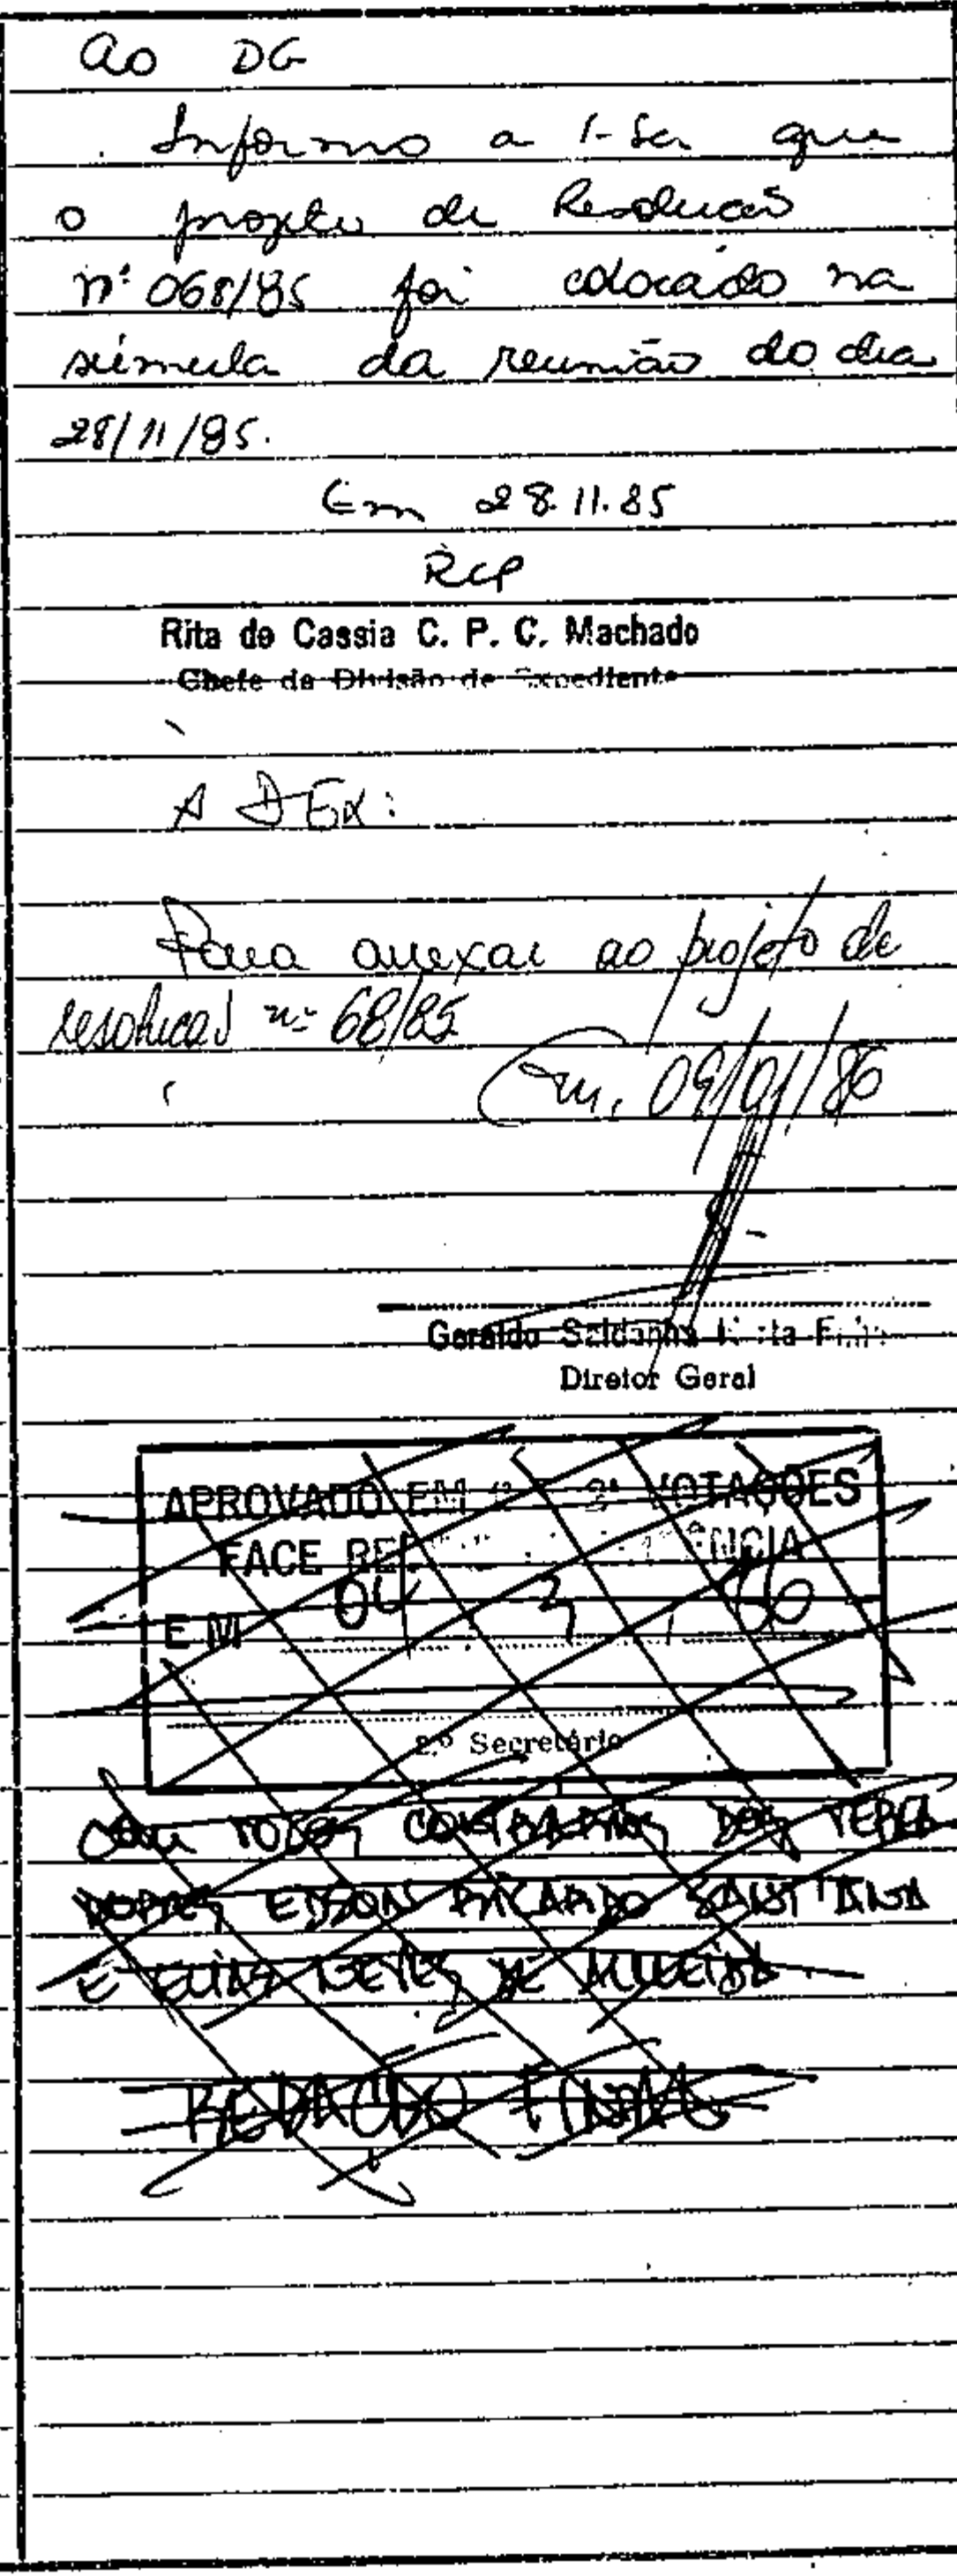 Ao DG
Informo a V.Sa que
o projeto de Resolução
nº 068/85 foi colocado na
súmula da reunião do dia
28/11/85.
Em 28.11.85
RCP
Rita de Cassia C. P. C. Machado
Chefe da Divisão de Expediente
A DEx:
Para anexar ao projeto de
resolução nº 68/85
Em, 09/01/86
Geraldo Saldanha
Diretor Geral
APROVADO EM 2ª VOTAÇÕES
FACE
EM 04 3
2.º Secretário
COM VOTOS CONTRÁRIOS DOS VEREA
DORES EDSON RICARDO SANT'ANA
E ELIAS DE ALMEIDA
REDAÇÃO FINAL